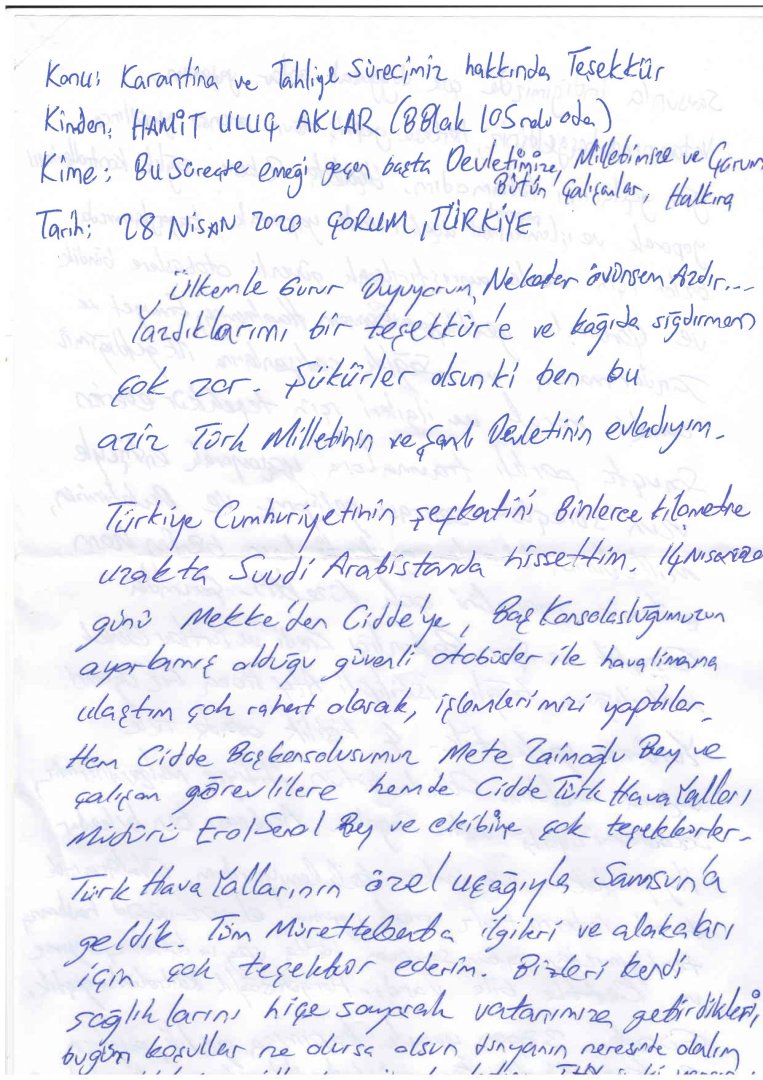 Konu: Karantina ve Tahliye Sürecimiz hakkında Teşekkür
Kimden: HAMİT ULUÇ AKLAR (B Blok 105 nolu oda)
Kime: Bu Süreçte emeği geçen başta Devletimize, Milletimize ve Çorum
Bütün Çalışanlar, Halkına
Tarih: 28 NİSAN 2020 ÇORUM, TÜRKİYE
Ülkemle Gurur Duyuyorum, Nekadar övünsem Azdır...
Yazdıklarımı bir teşekkür'e ve kağıda sığdırmam
çok zor. Şükürler olsun ki ben bu
aziz Türk Milletinin ve Şanlı Devletinin evladıyım.
Türkiye Cumhuriyetinin şefkatini Binlerce kilometre
uzakta Suudi Arabistanda hissettim. 14 Nisan 2020
günü Mekke'den Cidde'ye, Baş Konsolosluğumuzun
ayarlamış olduğu güvenli otobüsler ile havalimanına
ulaştım çok rahat olarak, işlemlerimizi yaptılar.
Hem Cidde Başkonsolosumuz Mete Zaimoğlu Bey ve
çalışan görevlilere hemde Cidde Türk Hava Yolları
Müdürü Erol Senol Bey ve ekibine çok teşekkürler.
Türk Hava Yollarının özel uçağıyla Samsun'a
geldik. Tüm Mürettebata ilgileri ve alakaları
için çok teşekkür ederim. Bizleri kendi
sağlıklarını hiçe sayarak vatanımıza getirdikleri,
bugün koşullar ne olursa olsun dünyanın neresinde olalım